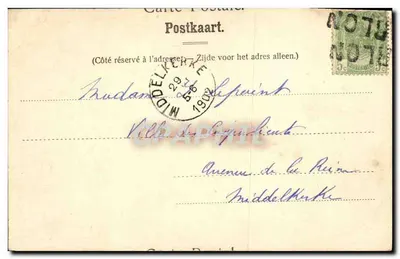 Carte Postale.
Postkaart.
(Côté réservé à l'adresse) — Zijde voor het adres alleen.
MIDDELKERKE
29
5-6
1902
LON
RLON
Madame Lepoint
Villa
Avenue de la Reine
Middelkerke